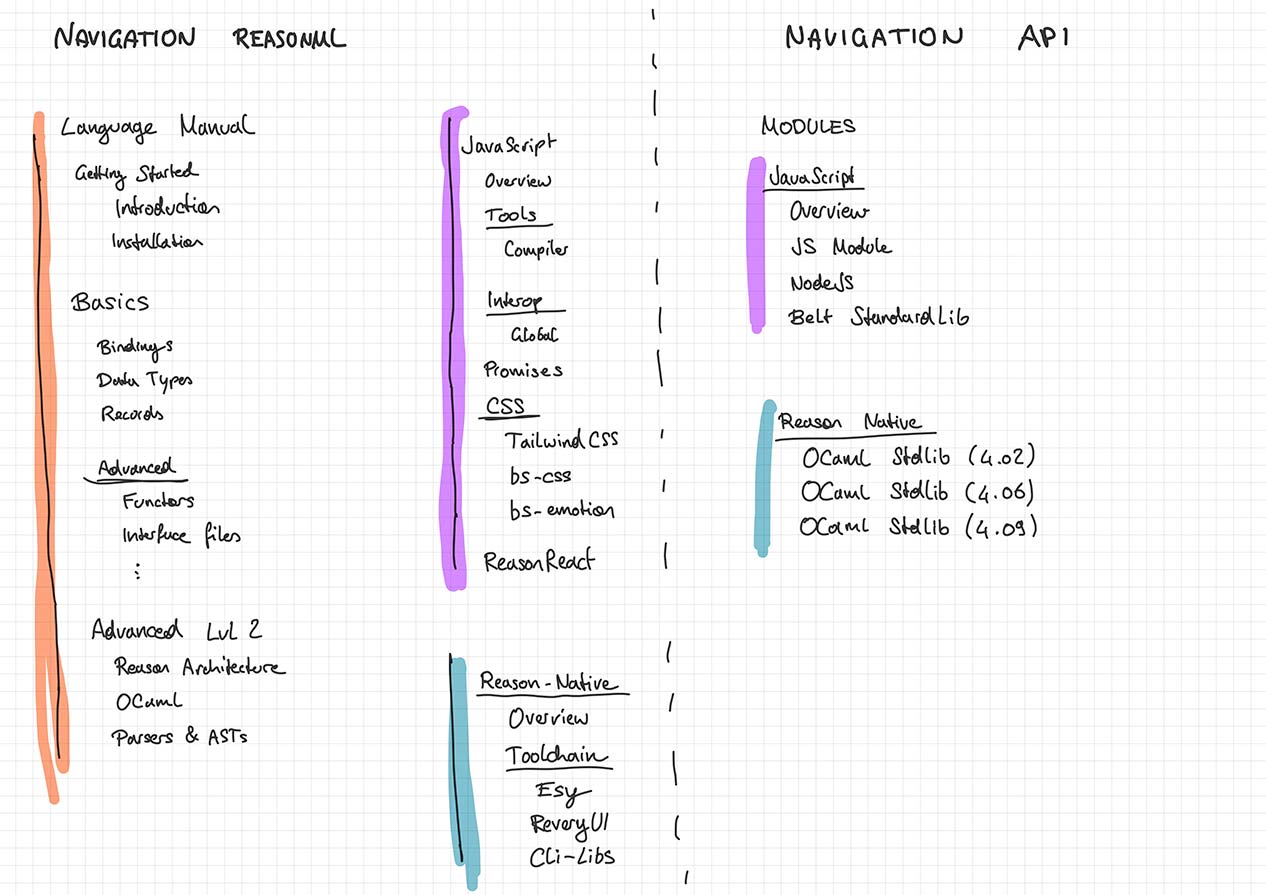 NAVIGATION REASONML
Language Manual
Getting Started
Introduction
Installation
Basics
Bindings
Data Types
Records
Advanced
Functors
Interface files
⋮
Advanced Lvl 2
Reason Architecture
OCaml
Parsers & ASTs
JavaScript
Overview
Tools
Compiler
Interop
Global
Promises
CSS
TailwindCSS
bs-css
bs-emotion
ReasonReact
Reason-Native
Overview
Toolchain
Esy
ReveryUI
Cli-Libs
NAVIGATION API
MODULES
JavaScript
Overview
JS Module
NodeJS
Belt StandardLib
Reason Native
OCaml Stdlib (4.02)
OCaml Stdlib (4.06)
OCaml Stdlib (4.09)